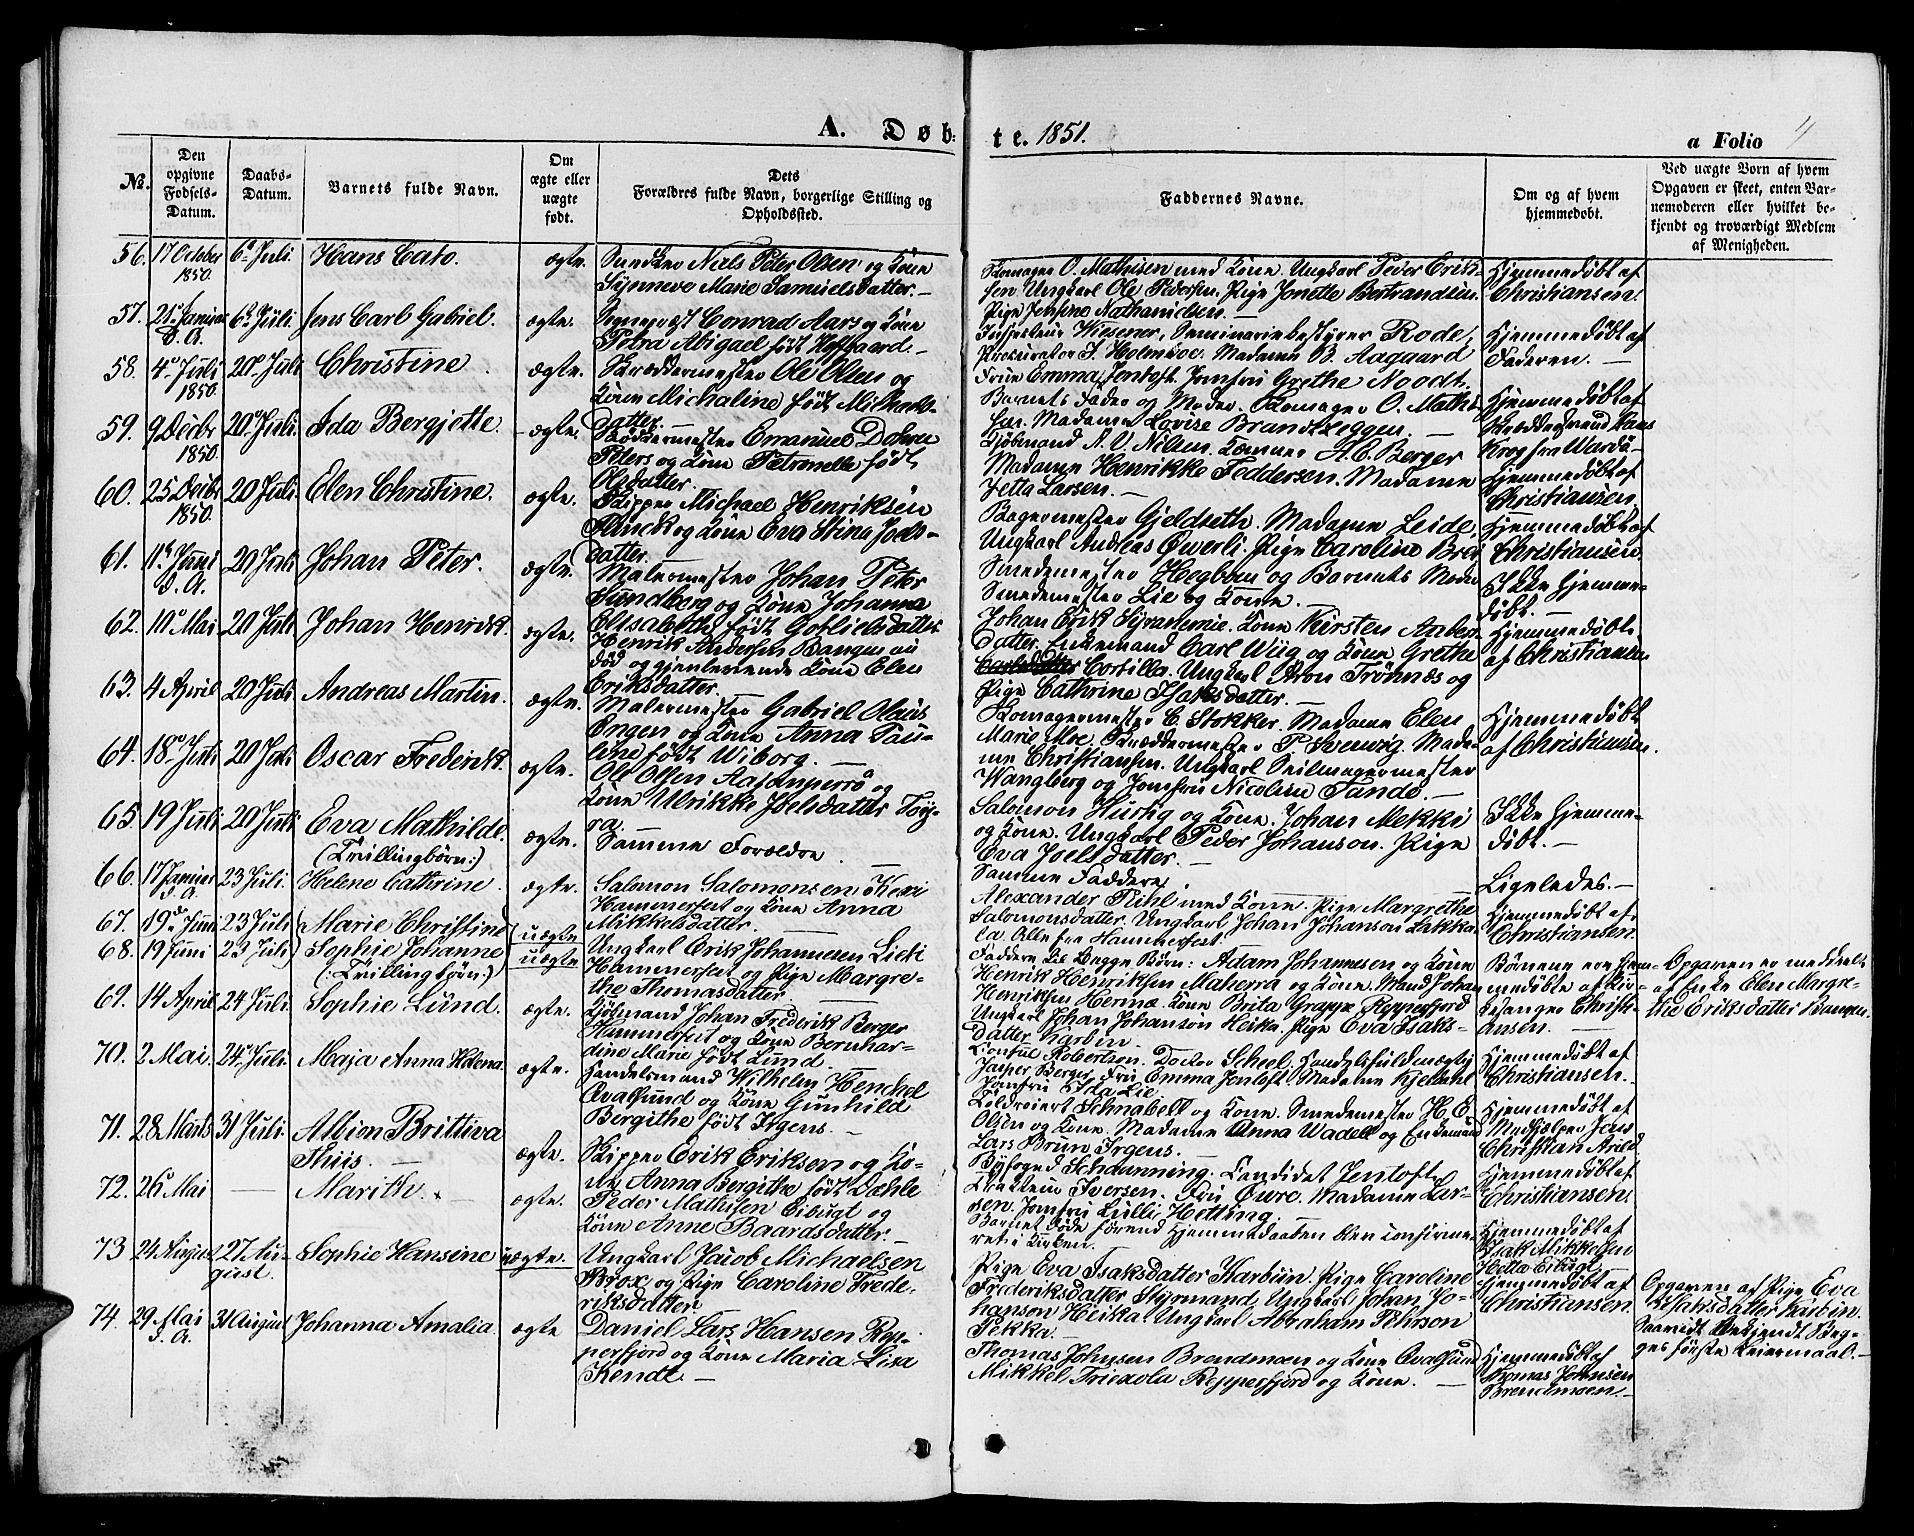 A. Døb: te. 1851.
a Folio 4
No.
Den opgivne Fødsels-Datum.
Daabs-Datum.
Barnets fulde Navn.
Om ægte eller uægte født.
Dets Forældres fulde Navn, borgerlige Stilling og Opholdssted.
Faddernes Navne.
Om og af hvem hjemmedøbt.
Ved uægte Børn af hvem Opgaven er skeet, enten Barnemoderen eller hvilket bekjendt og troværdigt Medlem af Menigheden.
56. 17 October 1850. 6te Juli. Hans Cato. ægte.
Niels Peter Olsen og Kone
Synneve Marie Samuelsdatter.
Skomager O. Mathisen med Kone. Ungkarl Peder Erik-
sen. Ungkarl Ole Pedersen. Pige Jonette Bertrandsen.
Pige Jensine Nathanielsen.
Hjemmedøbt af
Christiansen.
57. 6te Juli. Jens Carl Gabriel. ægte.
Conrad Aars og Kone
Petra Abigael født
Wiesener, Seminariebestyrer Rode,
Procurator J. Holmboe. Madame B. Aagaard
Frue Emma Jentoft. Jomfru Grethe Noodt.
Hjemmedøbt af
Faderen.
58. 4de Juli 1850. 20de Juli Christine. ægte.
Skræddermester Ole Olsen og
Kone Michaline født
datter.
Barnets Fader og Moder. Skomager O. Mathi-
sen. Madame Lovise Brandt
Hjemmedøbt af
59. 9 Decbr 1850. 20de Juli. Ida Bergjette. ægte.
Bøddermester Emanuel
Peters og Kone Petronelle født
Olsdatter.
Kjøbmand N. V. Nilsen. Kæmner H. C. Berger
Madame Henrikke Feddersen. Madame
Jetta Larsen.
Krog fra Wardø
Hjemmedøbt af
Christiansen.
60. 25 Decbr 1850. 20 Juli. Elen Christine. ægte.
Skipper Michael Henriksen
og Kone Eva Stina
datter.
Bagermester Gjeldseth. Madame Leide,
Ungkarl Andreas Øwerli. Pige Caroline
Hjemmedøbt af
Christiansen.
61. 11te Juni d. A. 20 Juli Johan Peter. ægte.
Malermester Johan Peter
Sundberg og Kone Johanna
Elisabeth født Gotliebsdatter
Smedemester Hegbom og Barnets Moder
Smedemester Lie og Kone.
Ikke hjemme-
døbt.
62. 10de Mai 20 Juli Johan Henrik. ægte.
Henrik Andersen Bangen nu
død og gjenlevende Kone Elen
Eriksdatter.
Johan Erik Kone Kirsten Anders-
datter. Enkemand Carl Wiig og Kone Grethe
Cortilla. Ungkarl Aron Trønnæs og
Pige Cathrine Isaksdatter.
Hjemmedøbt
af Christiansen
63. 4 April 20 Juli Andreas Martin. ægte.
Malermester Gabriel Olaus
Engen og Kone Anna Pau-
line født Wiborg.
Skomagermester C. Stokker. Madame Elen
Marie Moe. Skræddermester P. Svenvig. Mada-
me Christiansen. Ungkarl Seilmagermester
Wangberg og Jomfru Nicoline Tande.
Hjemmedøbt
af Christiansen.
64. 18de Juli 20 Juli Oscar Frederik. ægte.
Ole Olsen og
Kone Ulrikke Joelsdatter
Salomon Hurtig og Kone. Johan Mekki
og Kone. Ungkarl Peder Johanson. Pige
Eva Joelsdatter.
Ikke hjemme-
døbt.
65. 19 Juli 20 Juli Eva Mathilde. (Tvillingbørn:) ægte.
Samme Forældre.
Samme Faddere.
Ligeledes.
66. 17 Januar d. A. 23 Juli. Helene Cathrine. ægte.
Salomon Salomonsen
Hammerfest og Kone Anna
Mikkelsdatter.
Alexander Pihl med Kone. Pige Margrethe
Salomonsdatter. Ungkarl Johan Johanson Lakka-
la. Alle fra Hammerfest
Hjemmedøbt af
Christiansen.
67. 19de Juni 23 Juli Marie Christine uægte
68. 19 Juni 23 Juli Sophie Johanne (:Tvillingbørn:) uægte
Ungkarl Erik Johannesen
Hammerfest og Pige Margre-
the Thomasdatter
Faddere til begge Børn: Adam Johannesen og Kone
Henrik Henriksen Maherra og Kone. Mand Johan
Henriksen Kone Brita Grape Repperfjord
Ungkarl Johan Johanson Heika. Pige Eva Isaks-
datter Karbin.
Børnene ere hjem-
medøbte af Kir-
kesanger Christi-
ansen.
Opgaven er meddeelt
af Enke Elen Margre-
the Eriksdatter Bangen.
69. 14 April 24 Juli. Sophie Lund. ægte.
Kjøbmand Johan Frederik Berger
Hammerfest og Kone Bernhar-
dine Marie født Lund.
Consul Robertson. Doctor Scheel. Handelsfuldmægtig
Jasper Berger. Fru Emma Jentoft. Madame Kjeldahl
Jomfru Ida Lie
Hjemmedøbt af
Christiansen.
70. 2 Mai. 24de Juli. Maja Anna Helena. ægte.
Handelsmand Wilhelm Henckel
Qvalsund og Kone Gunhild
Bergithe født Irgens.
Toldroiert Schnabell og Kone. Smedemester H. E.
Olsen og Kone. Madame Anna Wadell og Enkemand
Lars Brun Irgens.
Hjemmedøbt af
Medhjælper Jens
Christian Arild.
71. 28 Marts 31 Juli. Albion Brittiva Thiis. ægte.
Skipper Erik Eriksen og Ko-
ne Anna Bergithe født Dahle
Byfoged Schanning. Candidat Jentoft.
Iversen. Fru Øwre. Madame Lar-
sen. Jomfru Lulli Hetting.
Hjemmedøbt af
Christiansen.
72. 26de Mai — Marith. ægte.
Peder Mathisen Eibugt og
Kone Anne Baardsdatter.
Barnet døde førend Hjemmedaaben blev confirme-
ret i Kirken.
Hjemmedøbt af
Isak Mikkelsen
Eibugt
73 24 August 27 August. Sophie Hansine uægte.
Ungkarl Jacob Michaelsen
Brox og Pige Caroline Frede-
riksdatter
Pige Eva Isaksdatter Karbin. Pige Caroline
Frederiksdatter Styrmand. Ungkarl Johan Jo-
hanson Heikla. Ungkarl Abraham Pehrson
Pekka.
Hjemmedøbt af
Christiansen.
Opgaven af Pige Eva
Isaksdatter Karbin.
Saavidt bekjendt Beg-
ges første Leiermaal.
74. 29 Mai d. A. 31 August Johanna Amalia. ægte
Daniel Lars Hansen Rep-
perfjord og Kone Maria Lisa
Kendt.
Thomas Johnsen Brendmoen og Kone Qvalsund
Mikkel Triexola Repperfjord og Kone.
Hjemmedøbt af
Thomas Johnsen
Brendmoen.